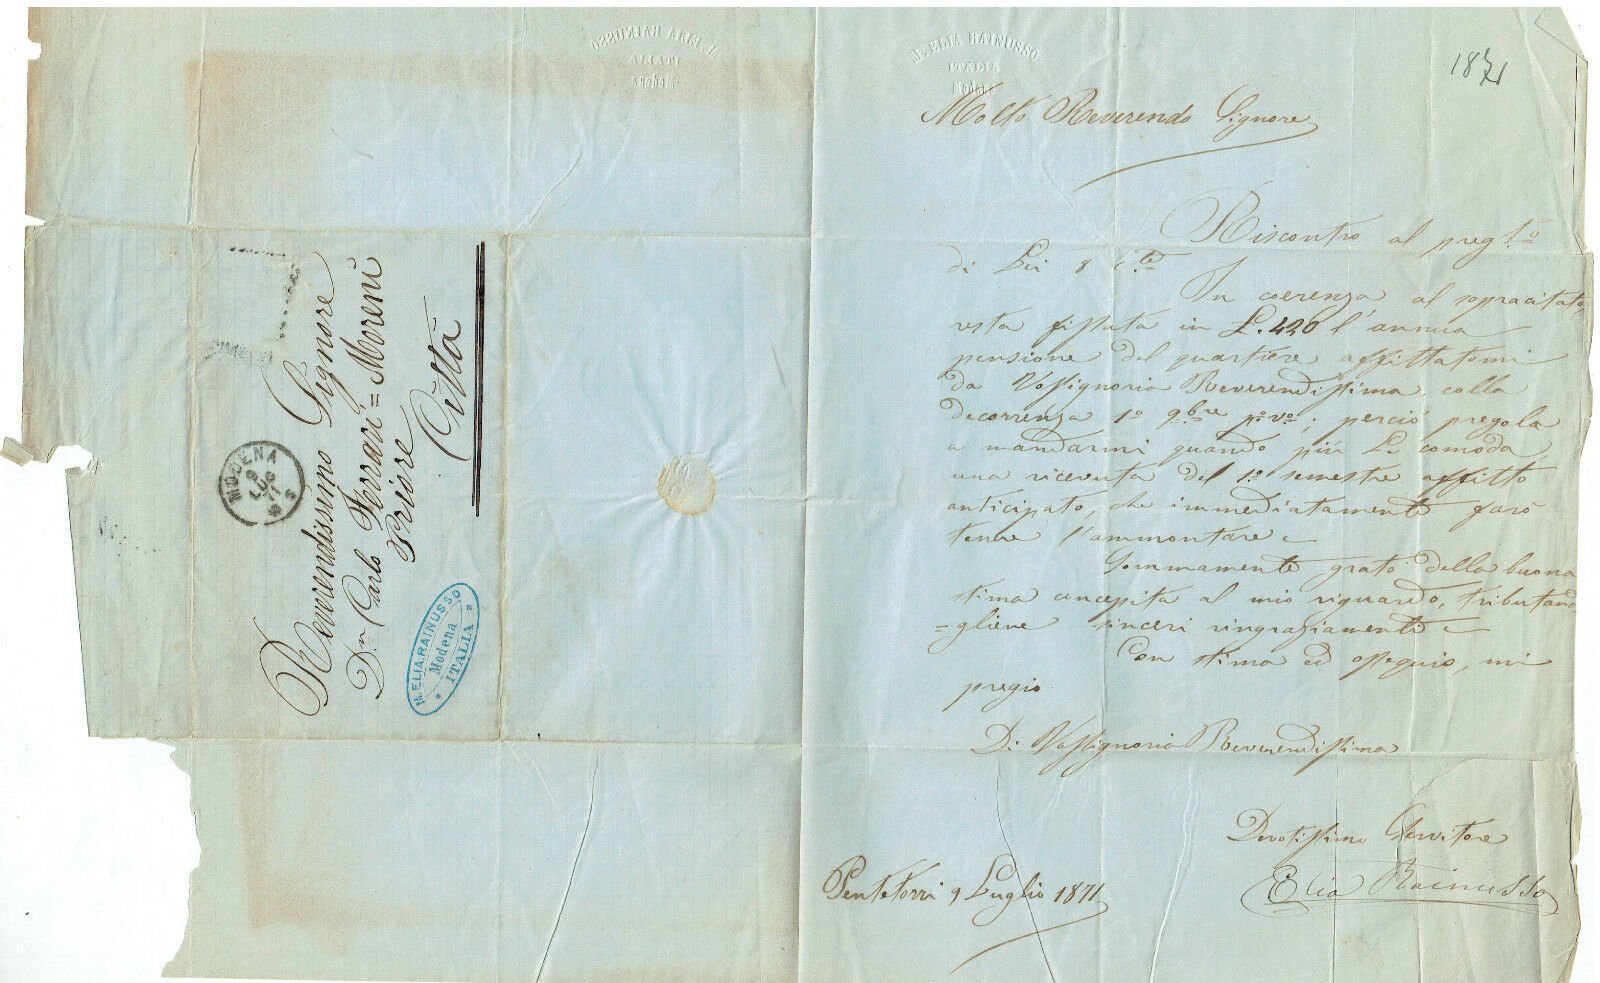 M. ELIA RAINUSSO
ITALIA
Modena
1871
Molto Reverendo Signore
Riscontro al preg.to
di Lei 8 c.te
In coerenza al sopracitato,
resta fissata in L. 420 l'annua
pensione del quartiere affittatomi
da Vossignoria Reverendissima, colla
decorrenza 1.o 9.bre p.o v.o; perciò pregola
a mandarmi quando più Le comoda,
una ricevuta del 1.o semestre affitto
anticipato, che immediatamente farò
tenere l'ammontare
Sommamente grato della buona
stima concepita al mio riguardo, tributan=
=gliene sinceri ringraziamenti
Con stima ed ossequio, mi
pregio
Di Vossignoria Reverendissima
Devotissimo Servitore
Elia Rainusso
9 Luglio 1871
M. ELIA RAINUSSO
ITALIA
Modena
Reverendissimo Signore
D.n Carlo Ferrari = Moreni
Priore
Città
MODENA
9
LUG
71
6 S
M. ELIA RAINUSSO
Modena
ITALIA